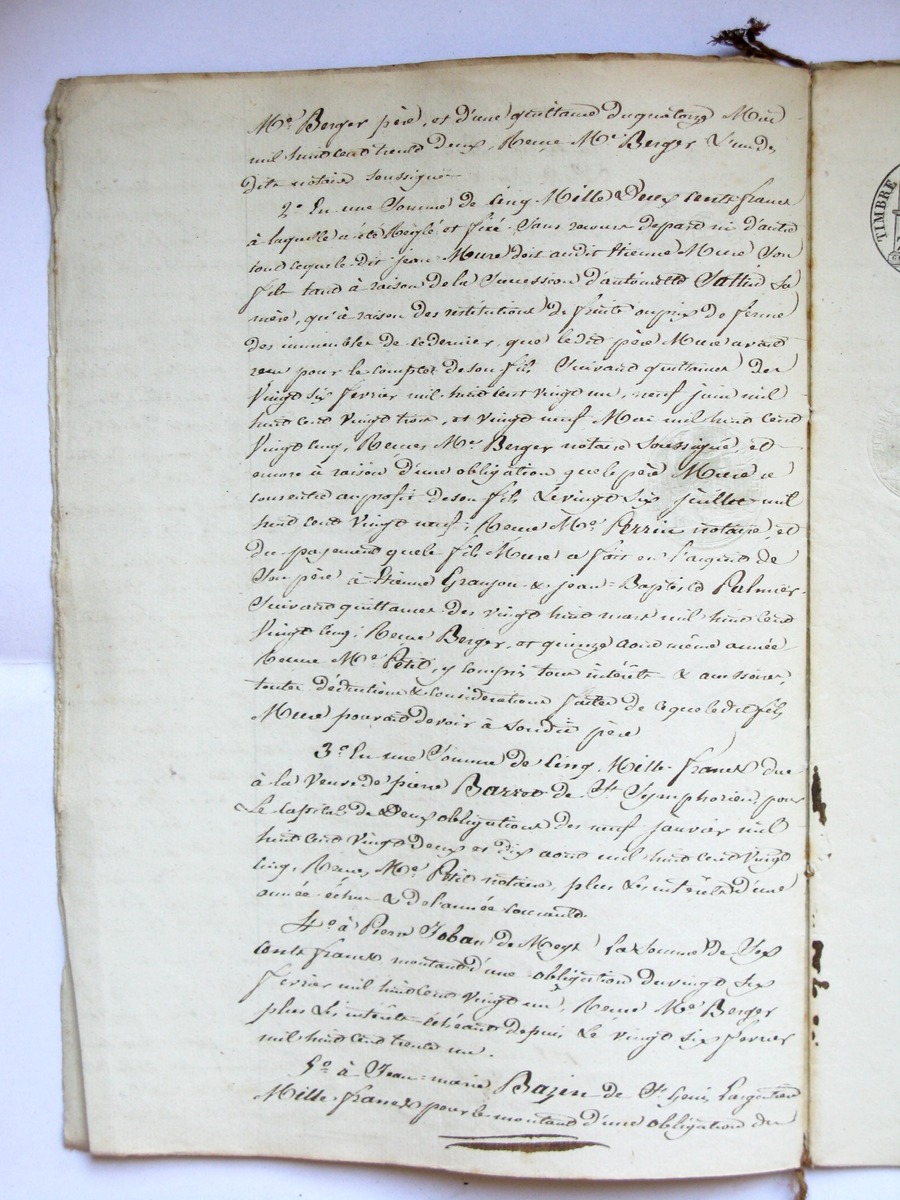 Me. Berger père, et d'une quittance du quatorze Mai
mil huit cent trente deux, Reçue Me Berger L'un des
dits notaires soussignés
2o En une Somme de Cinq Mille Deux cents francs
à laquelle a été Réglé et fixé Sans recours de part ni d'autre
tout ce que le dit jean Mure doit audit Etienne Mure Son
fils tant à raison de la Succession d'antoinette Sa
mère, qu'à raison des restitutions de fruits ou prix de ferme
des immeubles de ce dernier, que le dit père Mure avait
reçu pour le compte de son fils Suivant quittances des
Vingt six février mil huit cent vingt un, neuf juin mil
huit cent vingt trois, et vingt neuf Mai mil huit cent
Vingt cinq, Reçues Me Berger notaire Soussigné, et
encore à raison d'une obligation que le père Mure a
consentie au profit de son fils Le vingt six juillet mil
huit cent vingt neuf; Reçue Me. Perrin notaire, et
du payement que le fils Mure a fait en l'acquit de
Son père à Etienne Granjon & jean-Baptiste Palmier
Suivant quittances des vingt huit mars mil huit cent
Vingt cinq; Reçue Berger, et quinze août même année
Reçue Me. Petit, y compris tous intérêts & accessoires,
toutes déductions & considérations faites de ce que le dit fils
Mure pourrait devoir à Son dit père
3o. En une Somme de Cinq Mille francs due
à la Veuve de pierre de St. Symphorien pour
Le Capital de Deux obligations des neuf janvier mil
huit cent vingt Deux et dix août mil huit cent vingt
cinq, Reçues, Me. Petit notaire, plus Les intérêts d'une
année échue & de l'année courante.
4o. à Pierre de Meys La Somme De Six
cents francs montant d'une obligation du vingt six
février mil huit cent vingt un, Reçue Me. Berger
plus Les intérêts échéants depuis Le vingt six février
mil huit cent trente un.
5o. à Jean-marie Bazin de St. Genis L'argentière
Mille francs pour le montant d'une obligation du
TIMBRE